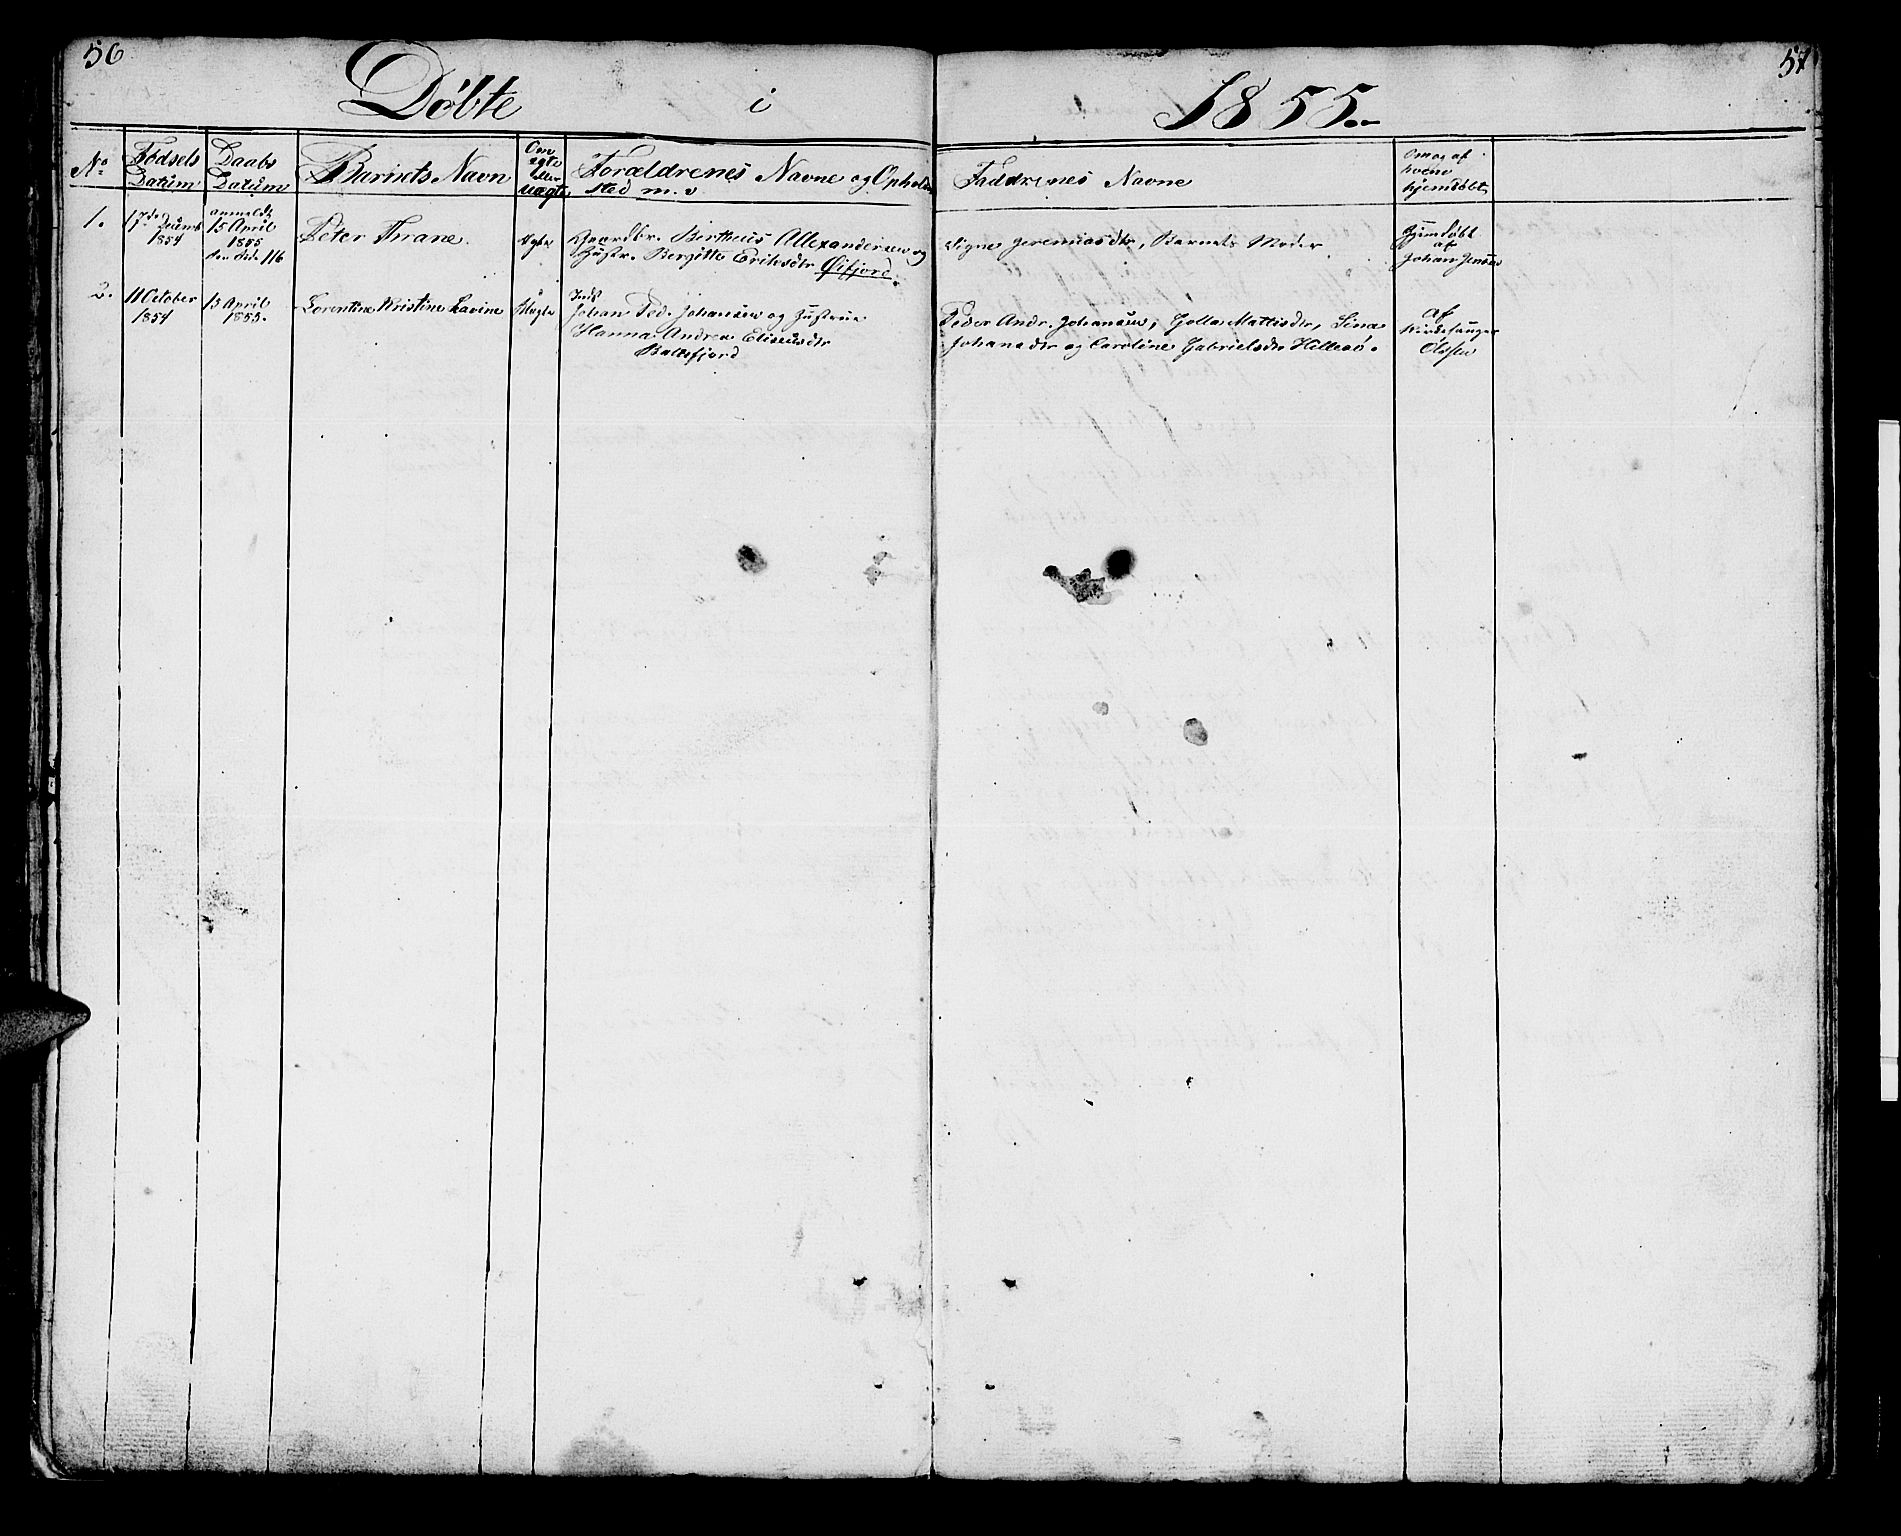 56
57
Døbte i 1855.
No
Fødsels Datum
Daabs Datum
Barnets Navn
Om ægte eller uægte
Forældrenes Navne og Opholds
sted m. v.
Faddrenes Navne
Om og af
hvem
hjemdøbt
1.
17de
1854
anmeldt
15 April
1855
116
Peter Thrane.
Ægte
Gaardbr. Bertheus Allexandersen og
Hustr. Bergitte Eriksdtr Øifjord.
Signe Jeremiasdtr, Barnets Moder
Hjemdøbt
af
Johan Jensen
2.
11 October
1854
15 April
1855.
Lorentine Kristine Lavine
Ægte
Inds
Johan Ped. Johansen og Hustrue
Hanna Andrea Eliseusdtr
Baltsfjord
Peder Andr. Johansen, Mattisdtr, Sina
Johansdtr og Caroline Gabrielsdtr Hillesø.
af
Kirkesanger
Olssen